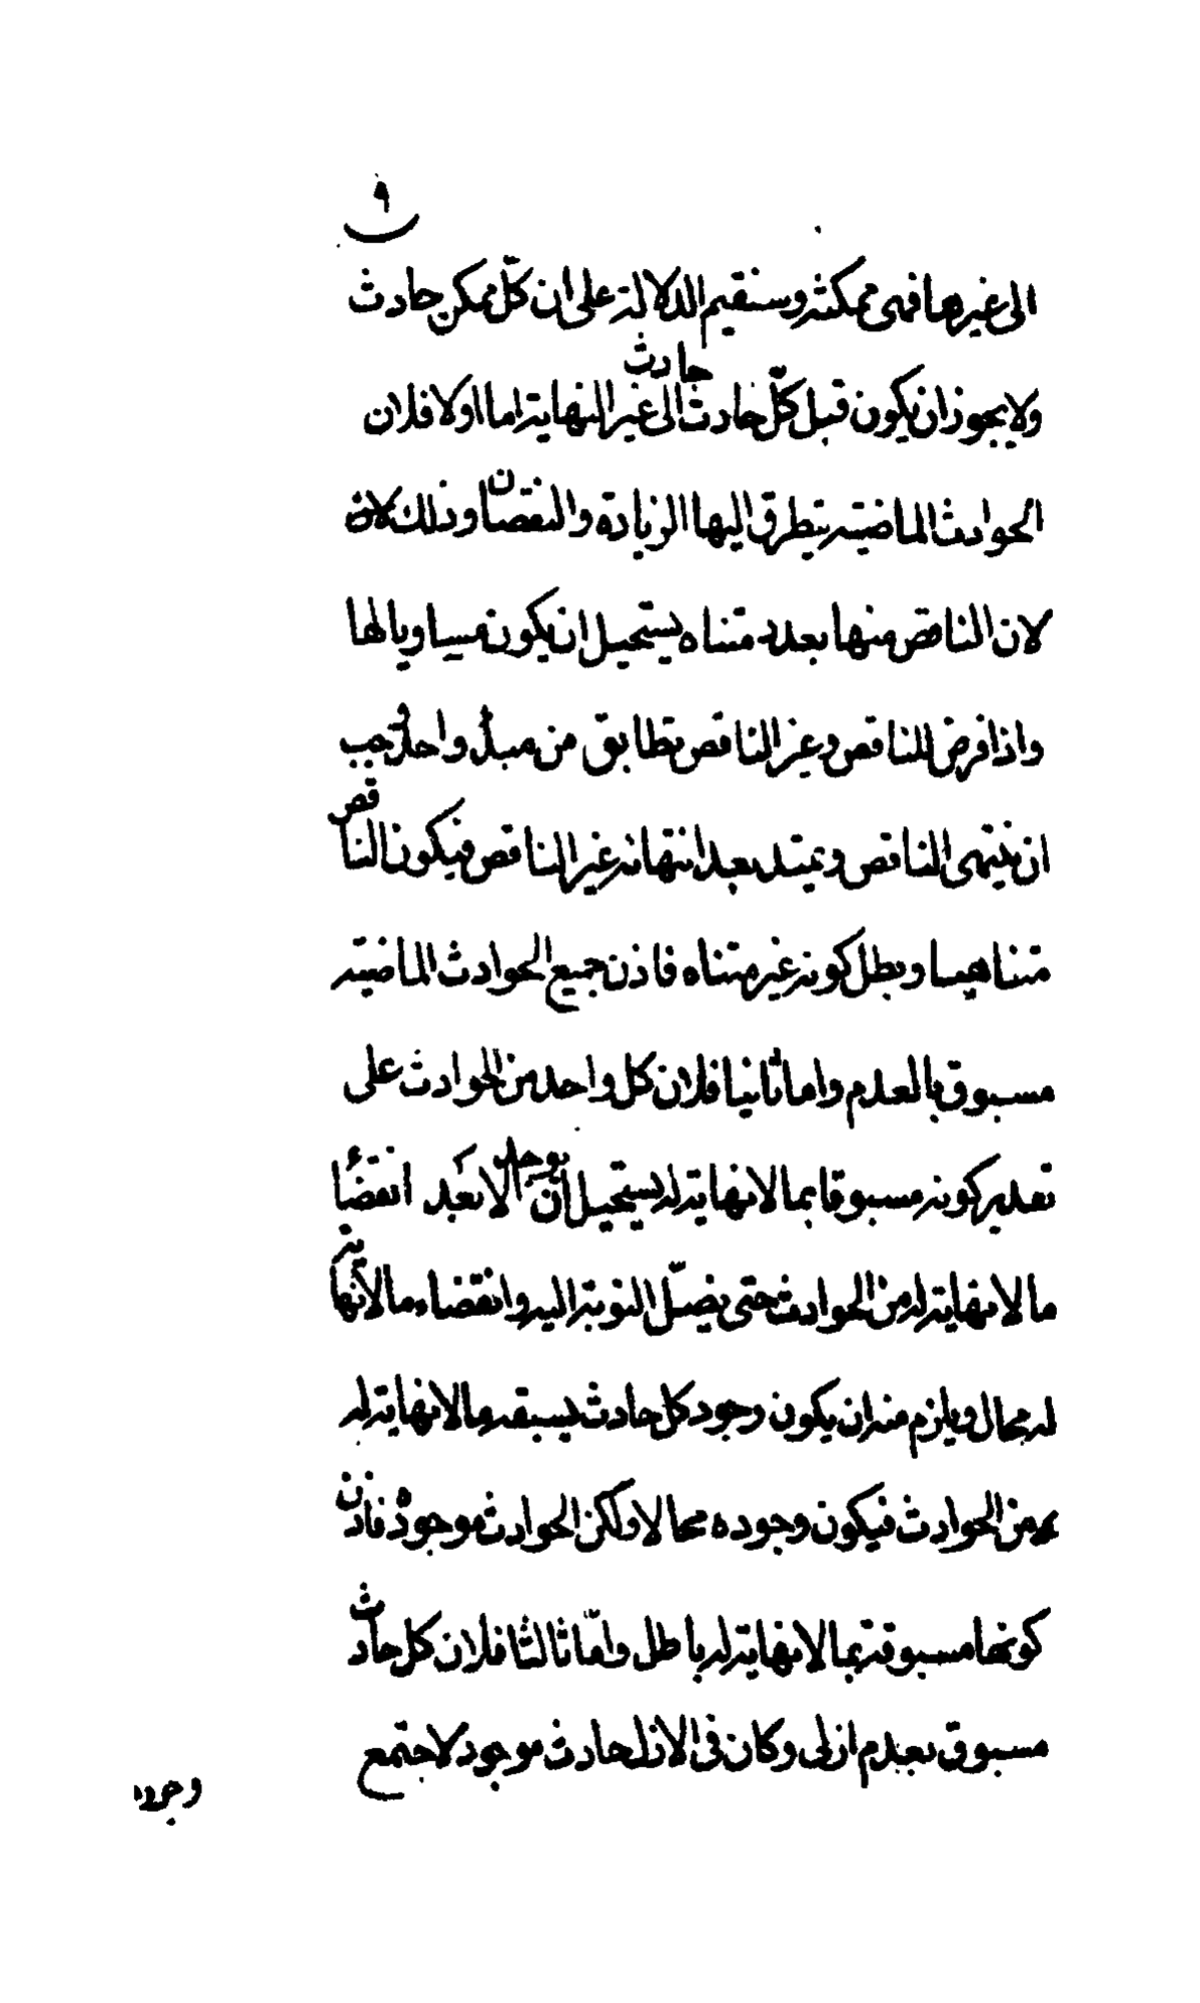 ٩
الى غيرها فهى ممكنة وسنقيم الدلالة على ان كلّ ممكن حادث
ولا يجوز ان يكون قبل كلّ حادث حادث الى غير النهاية اما اولا فلان
الحوادث الماضية يتطرق اليها الزيادة والنقصان وذلك لان
لان الناقص منها بعدد متناه يستحيل ان يكون مساويا لها
واذا فرض للناقص وغير الناقص تطابق من مبدأ واحد وجب
ان ينتهى الناقص ويمتد بعد انتهائه غير الناقص فيكون الناقص
متناهيا وبطل كونه غير متناه فاذن جميع الحوادث الماضية
مسبوق بالعدم واما ثانيا فلان كل واحد من الحوادث على
تقدير كونه مسبوقا بما لا نهاية له يستحيل ان يوجد الا بعد انقضاء
ما لا نهاية له من الحوادث حتى يصل النوبة اليه وانقضاء ما لا نهاية
له محال ويلزم منه ان يكون وجود كل حادث يسبقه ما لا نهاية له
من الحوادث فيكون وجوده محالا ولكن الحوادث موجودة فاذن
كونها مسبوقة بما لا نهاية له باطل وامّا ثالثا فلان كل حادث
مسبوق بعدم ازلى وكان فى الازل حادث موجود لاجتمع
وجوده